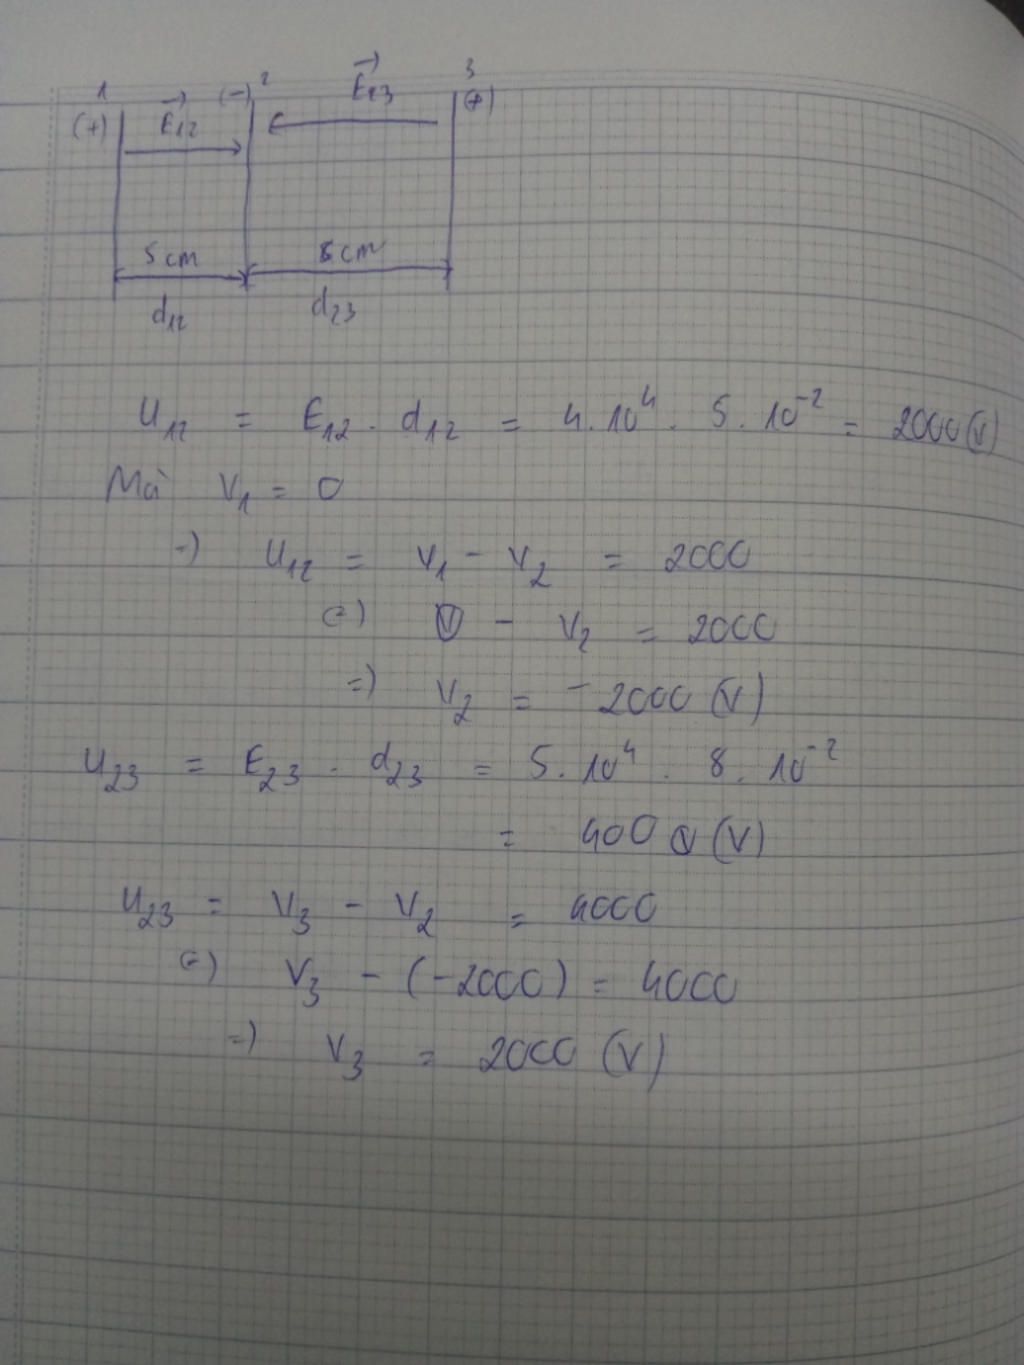 1 2 3
(+) E₁₂ (-) E₂₃ (+)
5cm 8cm
d₁₂ d₂₃
U₁₂ = E₁₂ . d₁₂ = 4.10⁴ . 5.10⁻² = 2000(V)
Mà V₁ = 0
=) U₁₂ = V₁ - V₂ = 2000
(=) 0 - V₂ = 2000
=) V₂ = -2000 (V)
U₂₃ = E₂₃ . d₂₃ = 5.10⁴ . 8.10⁻²
= 4000 (V)
U₂₃ = V₃ - V₂ = 4000
(=) V₃ - (-2000) = 4000
=) V₃ = 2000 (V)